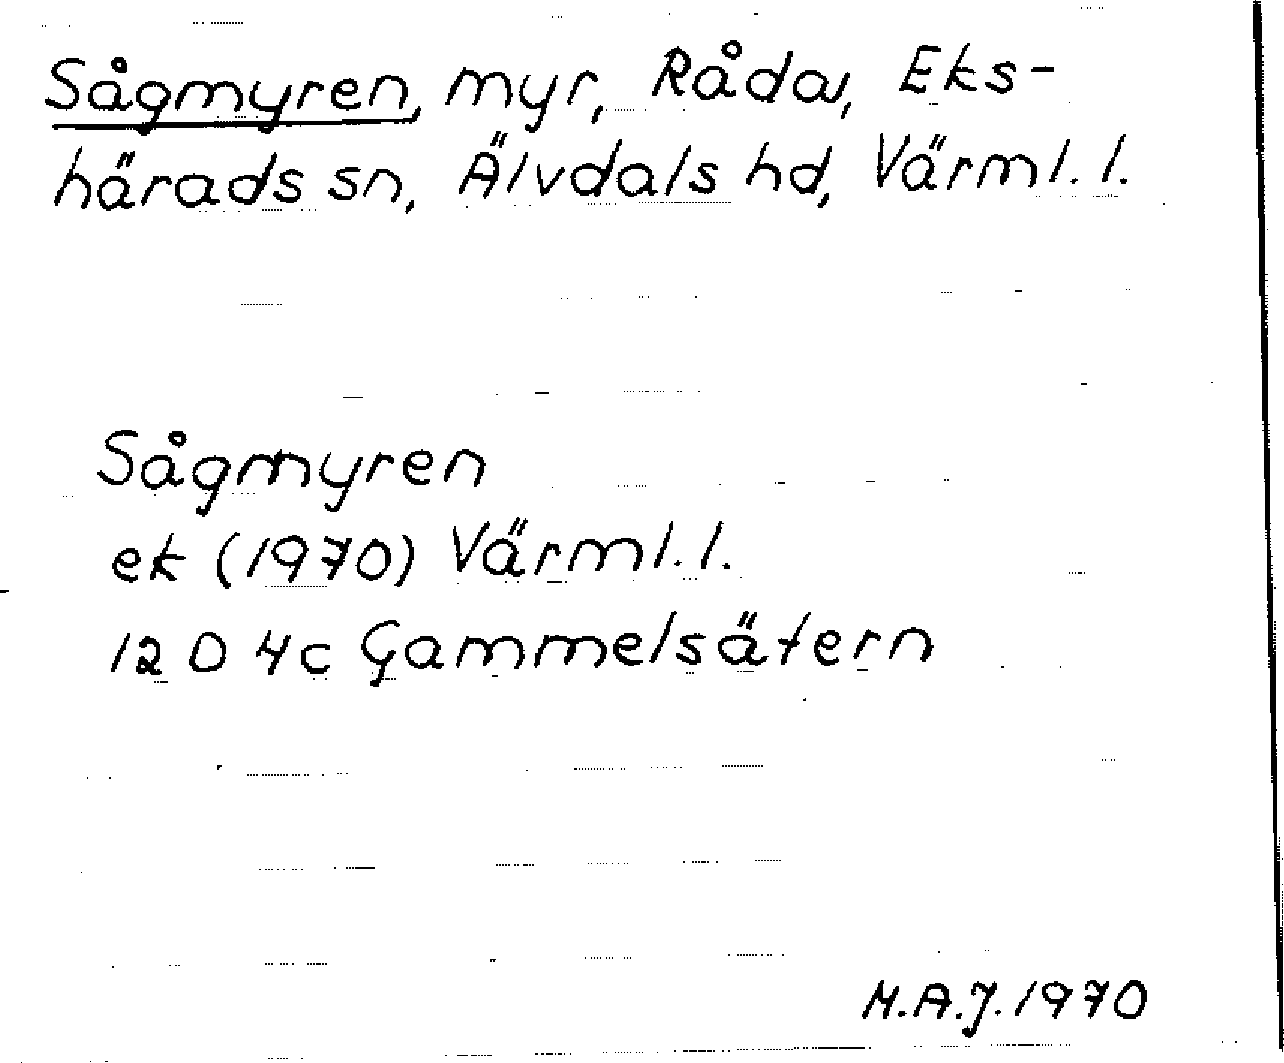 Sågmyren, myr, Råda, Eks-
härads sn, Älvdals hd, Värml. l.
Sågmyren
ek (1970) Värml. l.
12 D 4c Gammelsätern
M.A.J. 1970